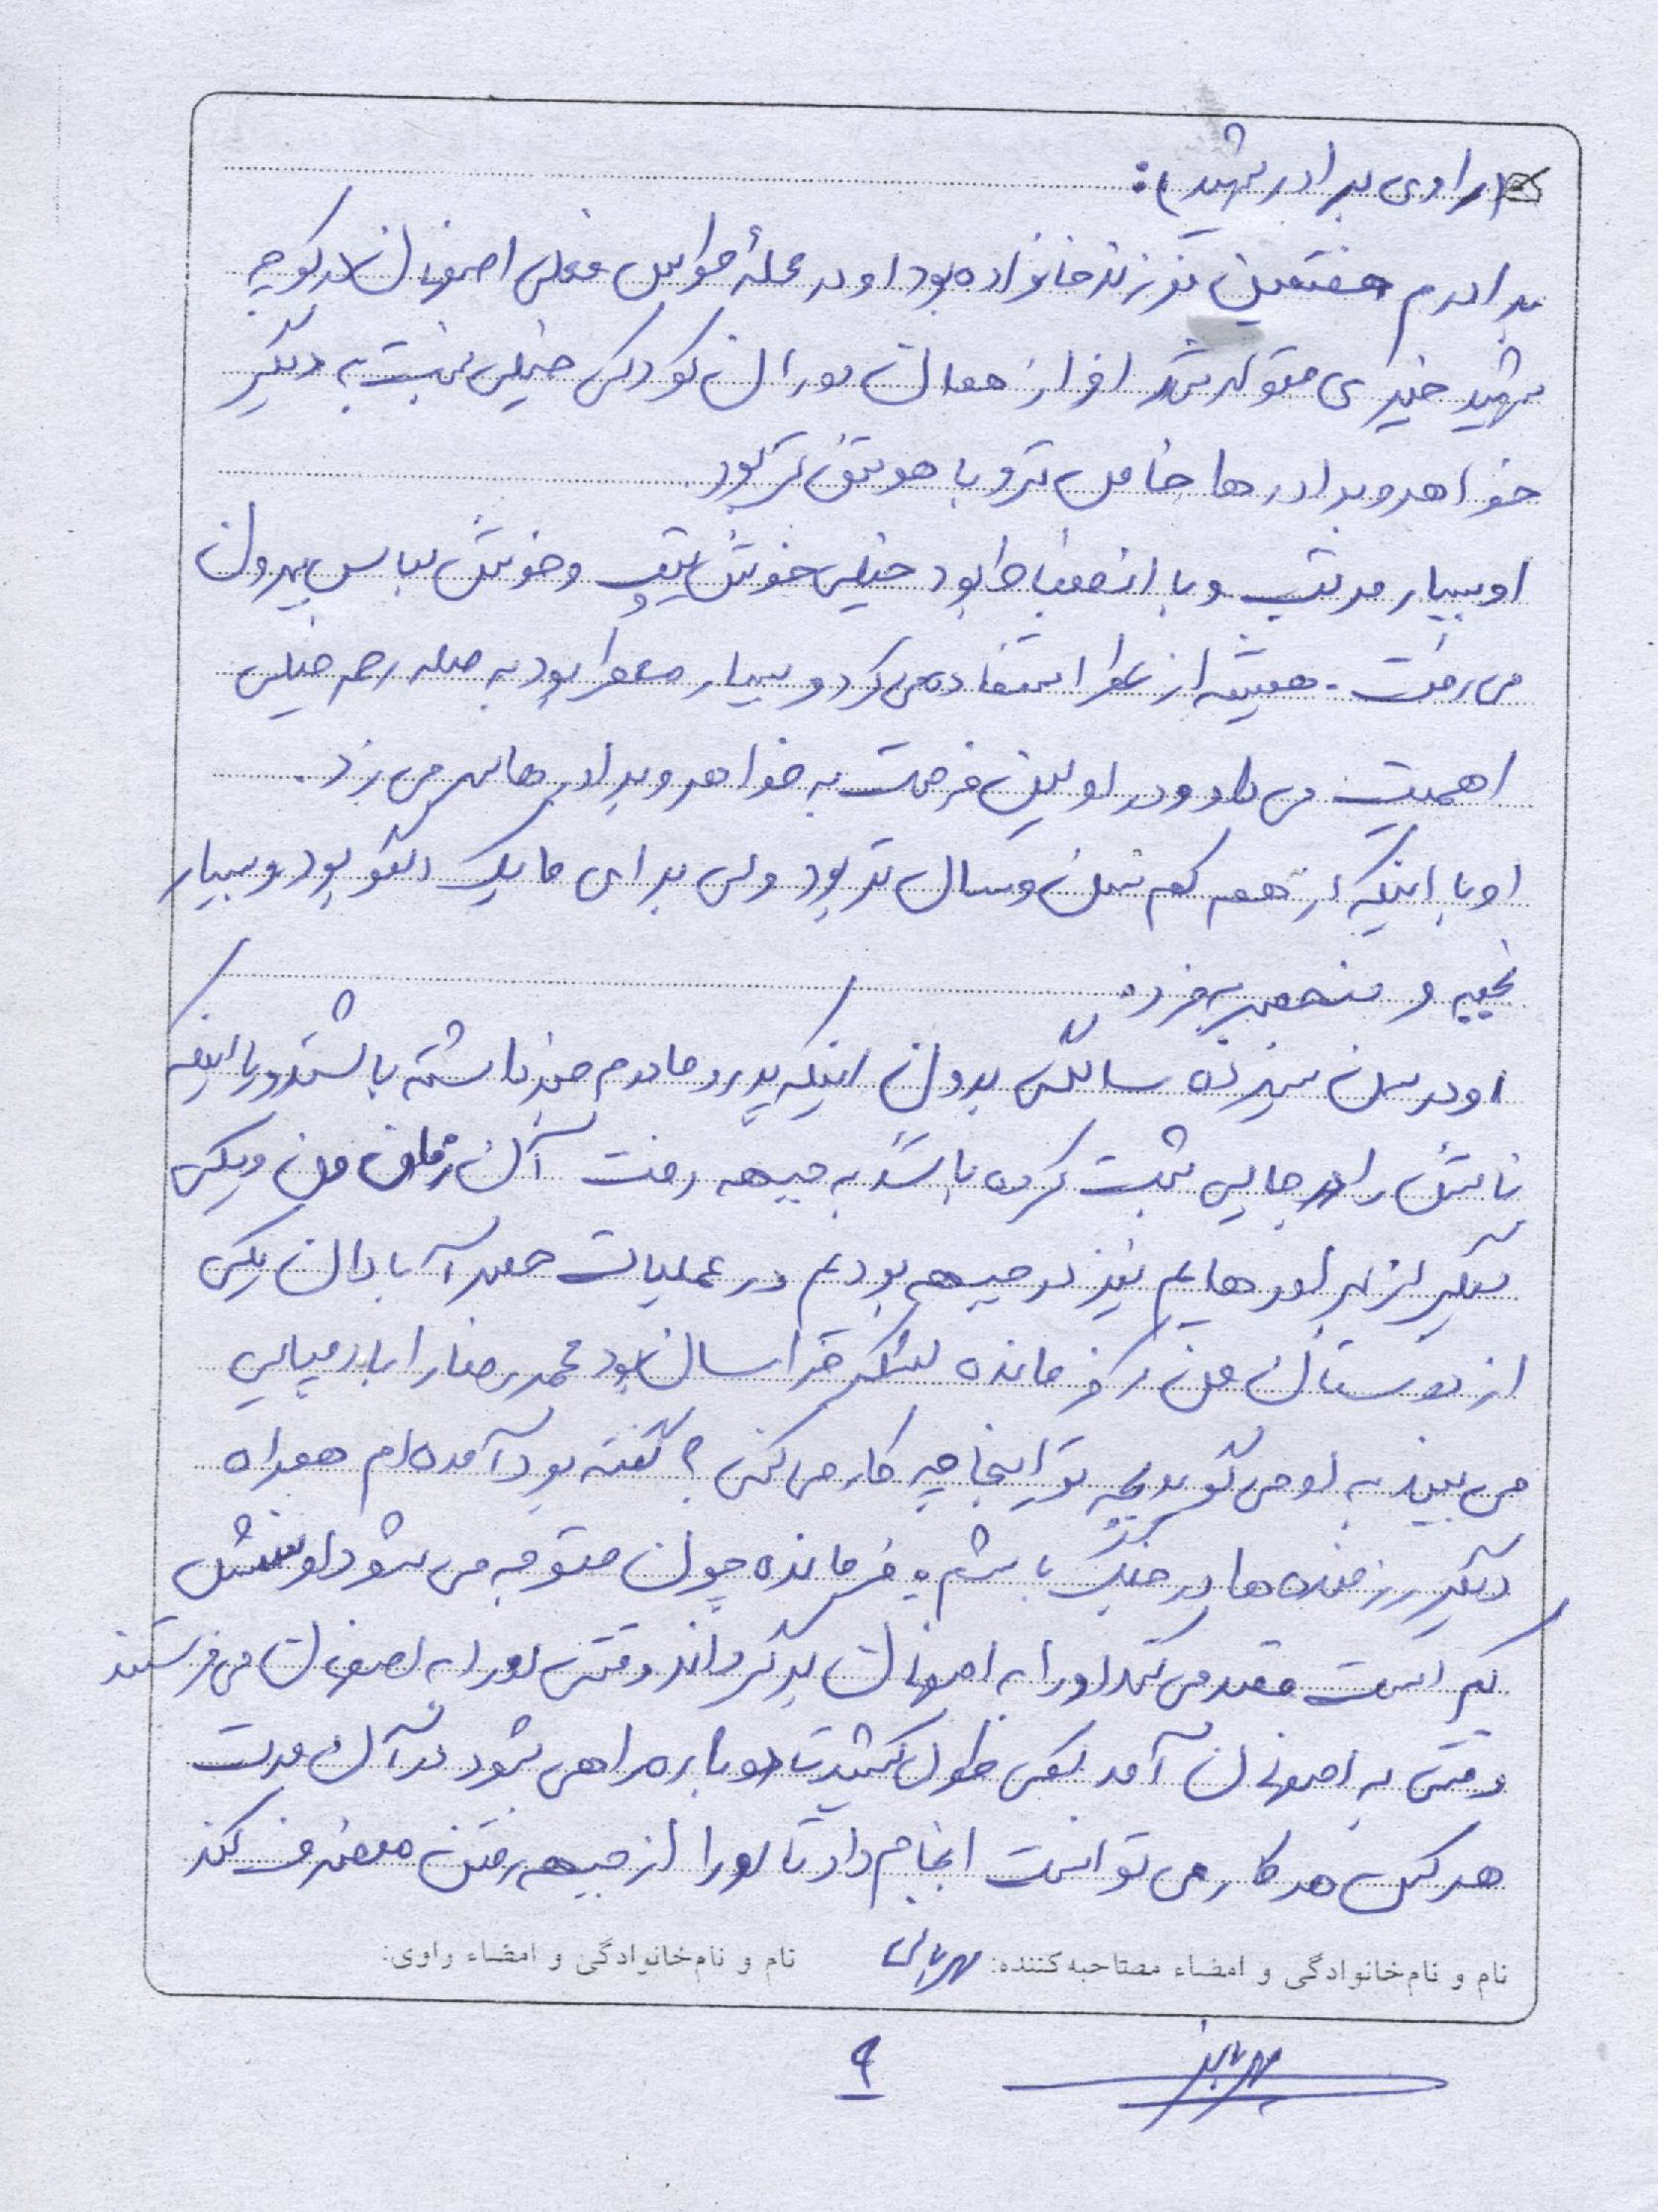 (راوی برادر شهید):
برادرم هفتمین فرزند خانواده بود او در محلهٔ عباس اصفهان در کوچه
شهید خیبری متولد شد او از همان دوران کودکی خیلی نسبت به دیگر
خواهر و برادرها خاص تر و با هوش تر بود.
او بسیار مرتب و با انضباط بود خیلی خوش تیپ و خوش لباس بیرون
می رفت. همیشه از عطر استفاده می کرد و بسیار معطر بود به صله رحم خیلی
اهمیت می داد و در اولین فرصت به خواهر و برادرها سر می زد.
او با اینکه از همه کم سن و سال تر بود ولی برای ما یک الگو بود و بسیار
نجیب و منحصر بفرد.
او در سن سیزده سالگی بدون اینکه پدر و مادرم خبر داشته باشند و یا اینکه
نامش را در جایی ثبت کرده باشد به جبهه رفت آن زمان من و یکی
دیگر از برادرهایم نیز در جبهه بودیم در عملیات حصر آبادان یکی
از دوستان من که فرمانده لشکر خراسان بود محمدرضا را
می بیند به او می گوید بچه تو اینجا چه کار می کنی؟ گفته بود آمده ام همراه
دیگر رزمنده ها در جنگ باشم. فرمانده چون متوجه می شود او سنش
کم است قصد می کند او را به اصفهان برگرداند وقتی او را به اصفهان می فرستند
وقتی به اصفهان آمد کمی طول کشید تا دوباره راهی شود در آن مدت
هر کس هر کار می توانست انجام داد تا او را از جبهه رفتن منصرف کند
نام و نام‌خانوادگی و امضاء مصاحبه‌کننده: نام و نام‌خانوادگی و امضاء راوی:
۹